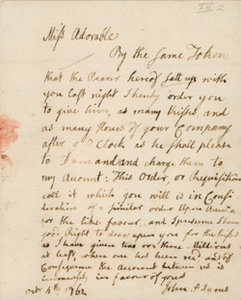 Miss Adorable
By the same Token
that the Bearer hereof satt up with
you last night I hereby order you
to give him, as many Kisses, and
as many Hours of your Company
after 9 O Clock as he shall please
to Demand and charge them to
my Account: This Order, or Requisition
call it which you will is in Consi
deration of a similar order Upon Aurelia
for the like favour, and I presume I have
good Right to draw upon you for the Kisses
as I have given two or three Millions
at least, when one has been recd and of
Consequence the Account between us is
immensely in favour of yours
John Adams
Octr. 4th. 1762